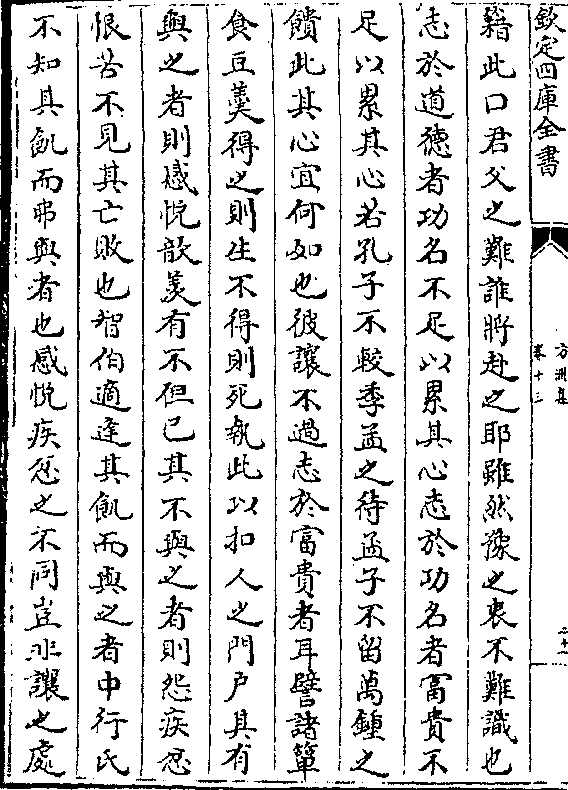 欽定四庫全書
方洲集
卷十三
籍此口君父之難誰將赴之耶雖然豫之衷不難識也
志於道德者功名不足以累其心志於功名者富貴不
足以累其心若孔子不較季孟之待孟子不留萬鍾之
饋此其心宜何如也彼讓不過志於富貴者耳譬諸簞
食豆羹得之則生不得則死執此以扣人之門戶其有
與之者則感悅歆羨有不但已其不與之者則怨疾忿
恨苦不見其亡敗也智伯適逢其飢而與之者中行氏
不知其飢而弗與者也感悅疾忿之不同豈非讓之處